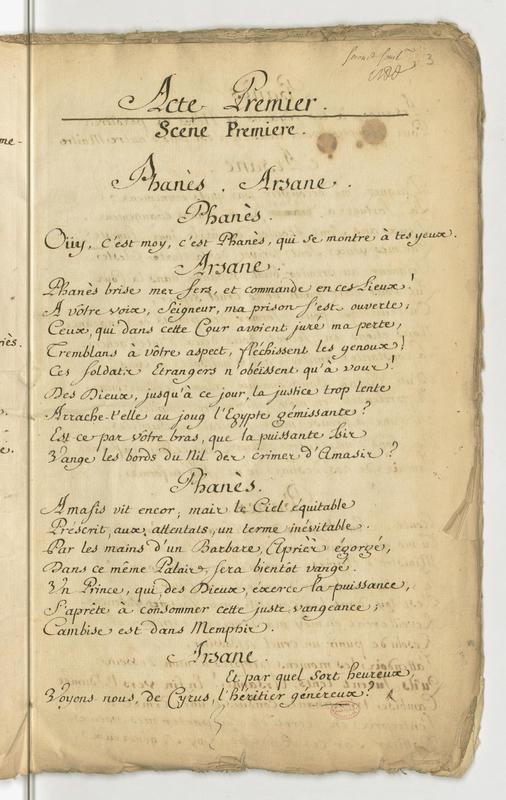 3
Acte Premier.
Scene Premiere.
Phanès. Arsane.
Phanès.
Oüy, c'est moy, c'est Phanès, qui se montre à tes yeux.
Arsane.
Phanès brise mes fers, et commande en ces Lieux!
A vôtre voix, Seigneur, ma prison s'est ouverte;
Ceux, qui dans cette Cour avoient juré ma perte,
Tremblans à vôtre aspect, fléchissent les genoux!
Ces soldats Etrangers n'obéissent qu'à vous!
Des Dieux, jusqu'à ce jour, la justice trop lente
Arrache-t'elle au joug l'Egypte gémissante?
Est-ce par vôtre bras, que la puissante Isis
Vange les bords du Nil des crimes d'Amasis?
Phanès.
Amasis vit encor, mais le Ciel équitable
Préscrit, aux attentats, un terme inévitable.
Par les mains d'un Barbare, Apriès égorgé,
Dans ce même Palais, sera bientôt vangé.
Un Prince, qui, des Dieux, éxerce la puissance,
S'aprête à consommer cette juste vangeance;
Cambise est dans Memphis.
Arsane.
Et par quel sort heureux,
Voyons nous, de Cyrus, l'héritier généreux?